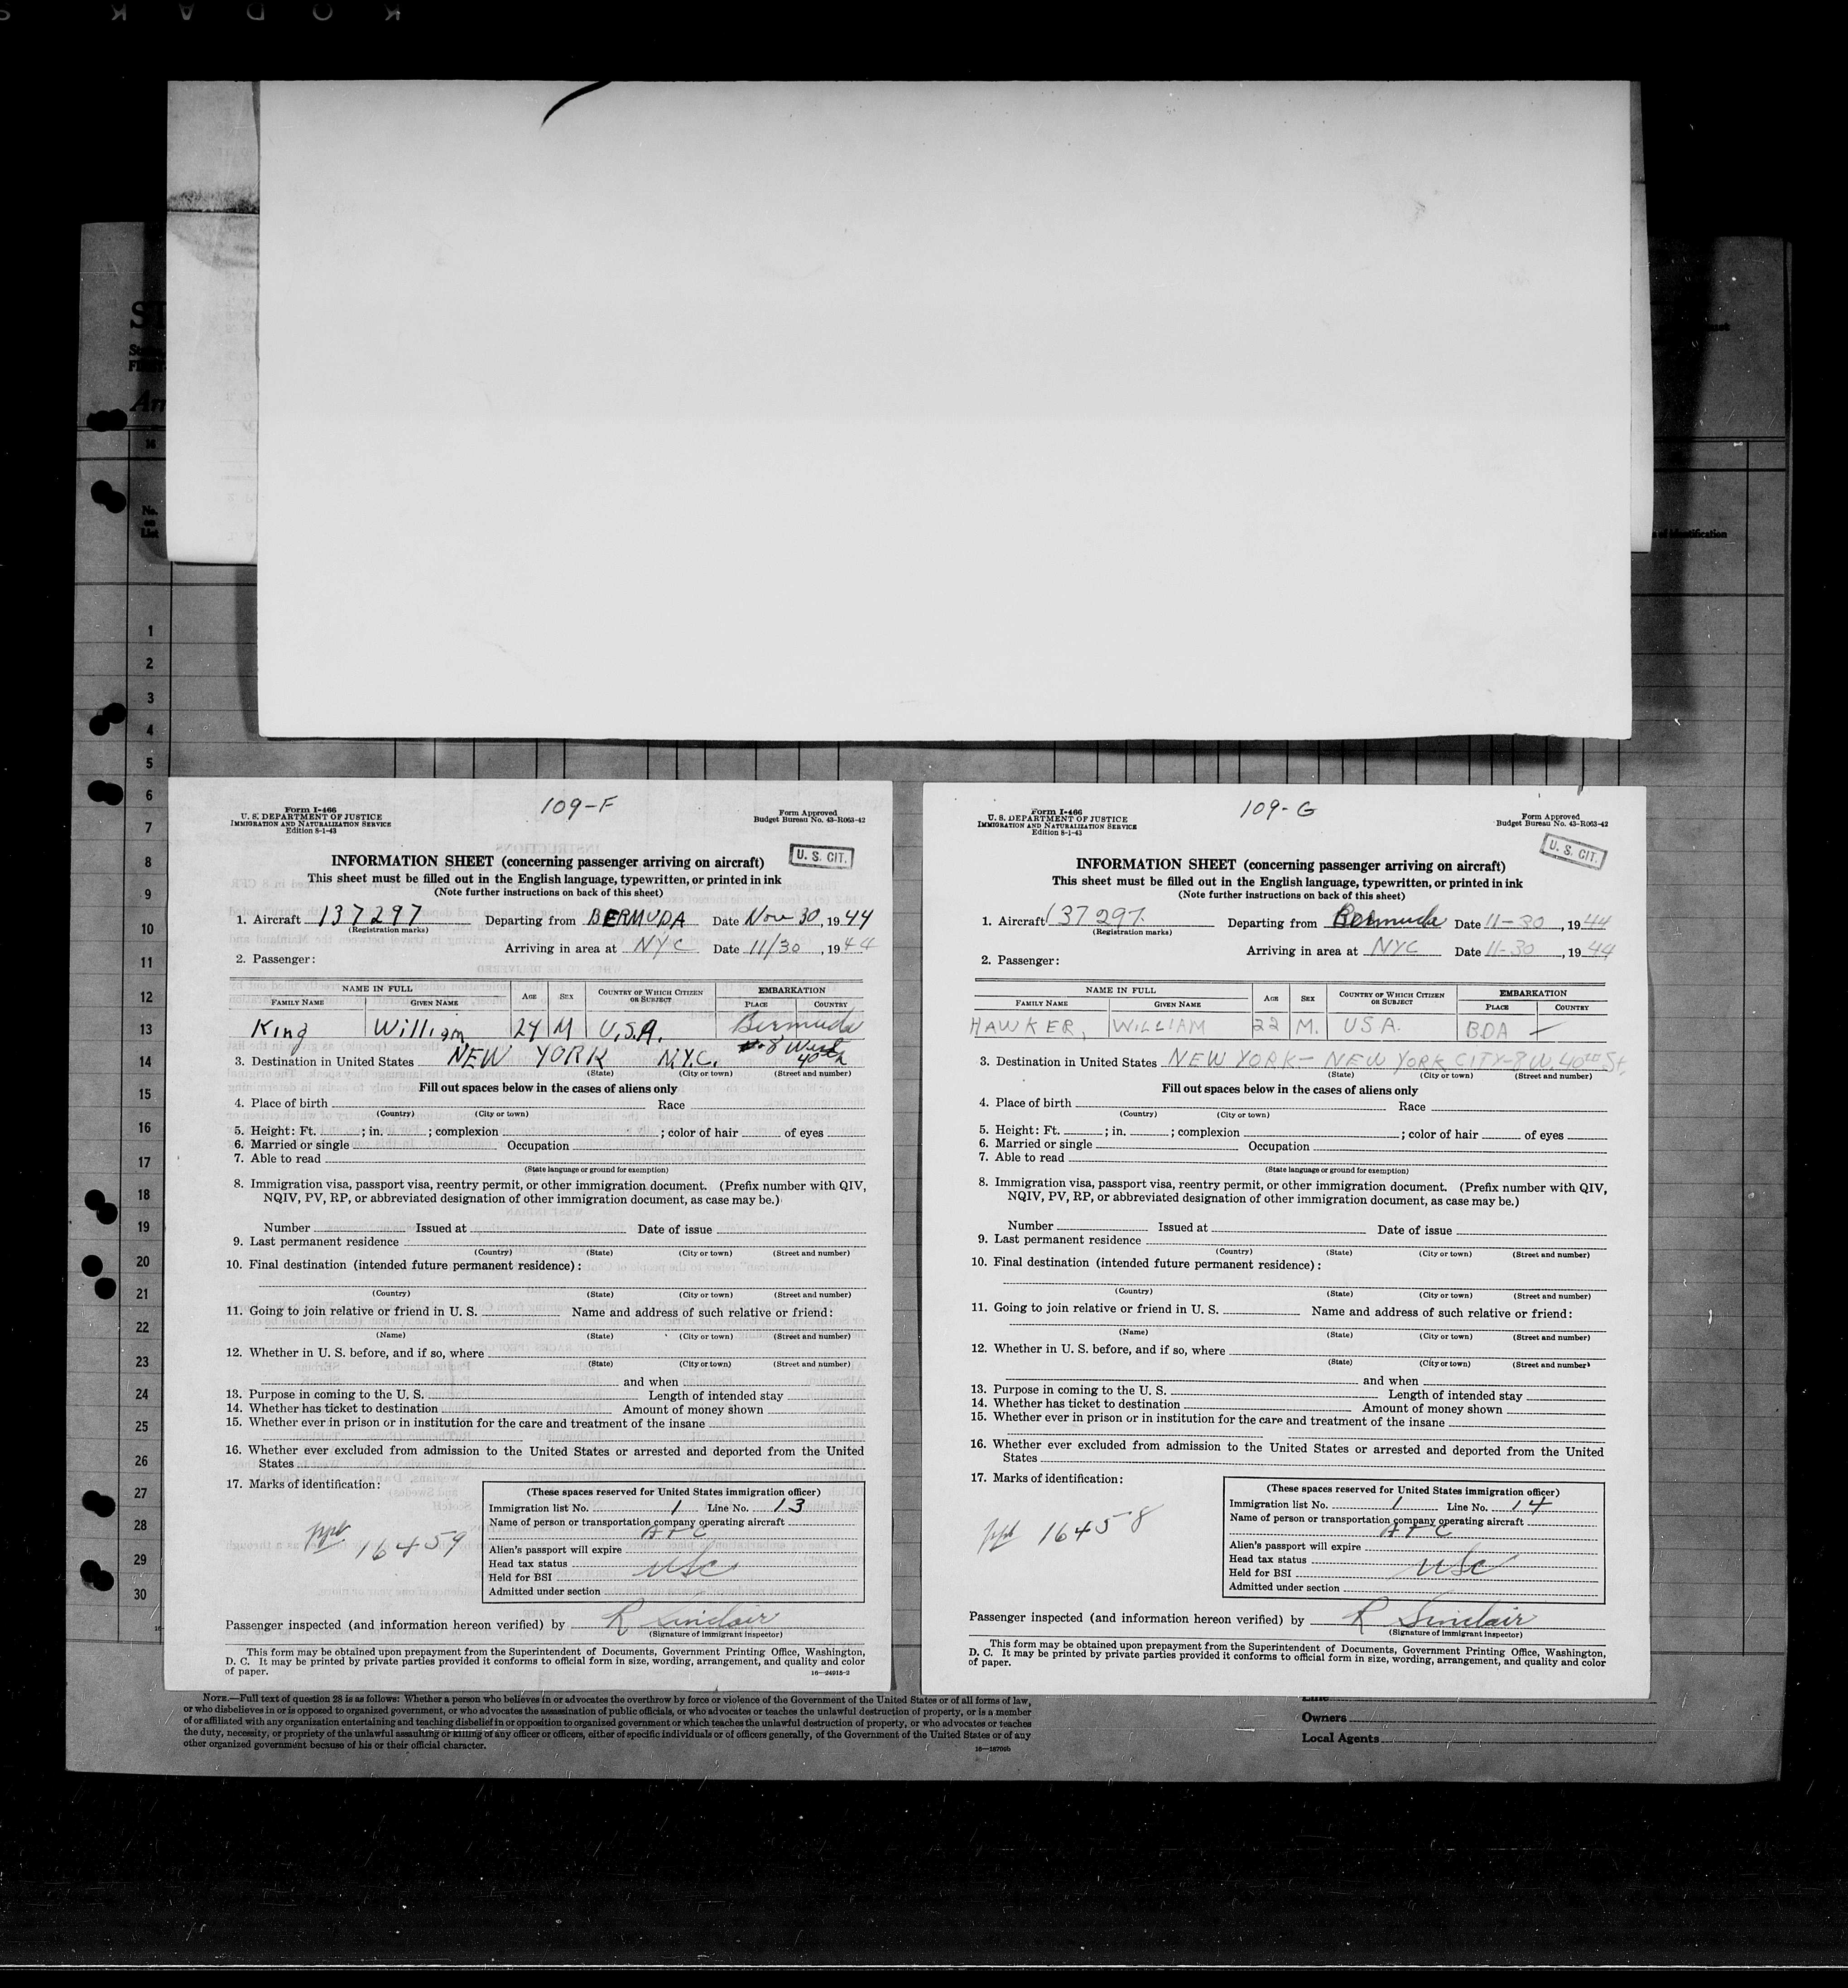 KODAK
No.
on
List
1
2
3
4
5
6
7
8
9
10
11
12
13
14
15
16
17
18
19
20
21
22
23
24
25
26
27
28
29
30
109-F
Form I-466
U. S. DEPARTMENT OF JUSTICE
IMMIGRATION AND NATURALIZATION SERVICE
Edition 8-1-43
Form Approved
Budget Bureau No. 43-R063-42
U. S. CIT.
INFORMATION SHEET (concerning passenger arriving on aircraft)
This sheet must be filled out in the English language, typewritten, or printed in ink
(Note further instructions on back of this sheet)
1. Aircraft 137297 Departing from BERMUDA Date Nov 30, 1944
(Registration marks)
Arriving in area at NYC Date 11/30, 1944
2. Passenger:
NAME IN FULL AGE SEX COUNTRY OF WHICH CITIZEN OR SUBJECT EMBARKATION
FAMILY NAME GIVEN NAME PLACE COUNTRY
King William 24 M U.S.A. Bermuda
3. Destination in United States NEW YORK N.Y.C. 8 West 40th
(State) (City or town) (Street and number)
Fill out spaces below in the cases of aliens only
4. Place of birth Race
(Country) (City or town)
5. Height: Ft. ; in. ; complexion ; color of hair of eyes
6. Married or single Occupation
7. Able to read
(State language or ground for exemption)
8. Immigration visa, passport visa, reentry permit, or other immigration document. (Prefix number with QIV,
NQIV, PV, RP, or abbreviated designation of other immigration document, as case may be.)
Number Issued at Date of issue
9. Last permanent residence
(Country) (State) (City or town) (Street and number)
10. Final destination (intended future permanent residence):
(Country) (State) (City or town) (Street and number)
11. Going to join relative or friend in U. S. Name and address of such relative or friend:
(Name) (State) (City or town) (Street and number)
12. Whether in U. S. before, and if so, where
(State) (City or town) (Street and number)
and when
13. Purpose in coming to the U. S. Length of intended stay
14. Whether has ticket to destination Amount of money shown
15. Whether ever in prison or in institution for the care and treatment of the insane
16. Whether ever excluded from admission to the United States or arrested and deported from the United
States
17. Marks of identification:
ppt 16459
(These spaces reserved for United States immigration officer)
Immigration list No. 1 Line No. 13
Name of person or transportation company operating aircraft
ATC
Alien's passport will expire
Head tax status USC
Held for BSI
Admitted under section
Passenger inspected (and information hereon verified) by R Sinclair
(Signature of immigrant inspector)
This form may be obtained upon prepayment from the Superintendent of Documents, Government Printing Office, Washington,
D. C. It may be printed by private parties provided it conforms to official form in size, wording, arrangement, and quality and color
of paper.
16—24915-2
109-G
Form I-466
U. S. DEPARTMENT OF JUSTICE
IMMIGRATION AND NATURALIZATION SERVICE
Edition 8-1-43
Form Approved
Budget Bureau No. 43-R063-42
U. S. CIT.
INFORMATION SHEET (concerning passenger arriving on aircraft)
This sheet must be filled out in the English language, typewritten, or printed in ink
(Note further instructions on back of this sheet)
1. Aircraft 137297 Departing from Bermuda Date 11-30, 1944
(Registration marks)
Arriving in area at NYC Date 11-30, 1944
2. Passenger:
NAME IN FULL AGE SEX COUNTRY OF WHICH CITIZEN OR SUBJECT EMBARKATION
FAMILY NAME GIVEN NAME PLACE COUNTRY
HAWKER, WILLIAM 22 M. USA. BDA
3. Destination in United States NEW YORK - NEW YORK CITY - 8 W. 40th St.
(State) (City or town) (Street and number)
Fill out spaces below in the cases of aliens only
4. Place of birth Race
(Country) (City or town)
5. Height: Ft. ; in. ; complexion ; color of hair of eyes
6. Married or single Occupation
7. Able to read
(State language or ground for exemption)
8. Immigration visa, passport visa, reentry permit, or other immigration document. (Prefix number with QIV,
NQIV, PV, RP, or abbreviated designation of other immigration document, as case may be.)
Number Issued at Date of issue
9. Last permanent residence
(Country) (State) (City or town) (Street and number)
10. Final destination (intended future permanent residence):
(Country) (State) (City or town) (Street and number)
11. Going to join relative or friend in U. S. Name and address of such relative or friend:
(Name) (State) (City or town) (Street and number)
12. Whether in U. S. before, and if so, where
(State) (City or town) (Street and number)
and when
13. Purpose in coming to the U. S. Length of intended stay
14. Whether has ticket to destination Amount of money shown
15. Whether ever in prison or in institution for the care and treatment of the insane
16. Whether ever excluded from admission to the United States or arrested and deported from the United
States
17. Marks of identification:
ppt 16458
(These spaces reserved for United States immigration officer)
Immigration list No. 1 Line No. 14
Name of person or transportation company operating aircraft
ATC
Alien's passport will expire
Head tax status USC
Held for BSI
Admitted under section
Passenger inspected (and information hereon verified) by R Sinclair
(Signature of immigrant inspector)
This form may be obtained upon prepayment from the Superintendent of Documents, Government Printing Office, Washington,
D. C. It may be printed by private parties provided it conforms to official form in size, wording, arrangement, and quality and color
of paper.
NOTE.—Full text of question 28 is as follows: Whether a person who believes in or advocates the overthrow by force or violence of the Government of the United States or of all forms of law,
or who disbelieves in or is opposed to organized government, or who advocates the assassination of public officials, or who advocates or teaches the unlawful destruction of property, or is a member
of or affiliated with any organization entertaining and teaching disbelief in or opposition to organized government or which teaches the unlawful destruction of property, or who advocates or teaches
the duty, necessity, or propriety of the unlawful assaulting or killing of any officer or officers, either of specific individuals or of officers generally, of the Government of the United States or of any
other organized government because of his or their official character.
Line
Owners
Local Agents